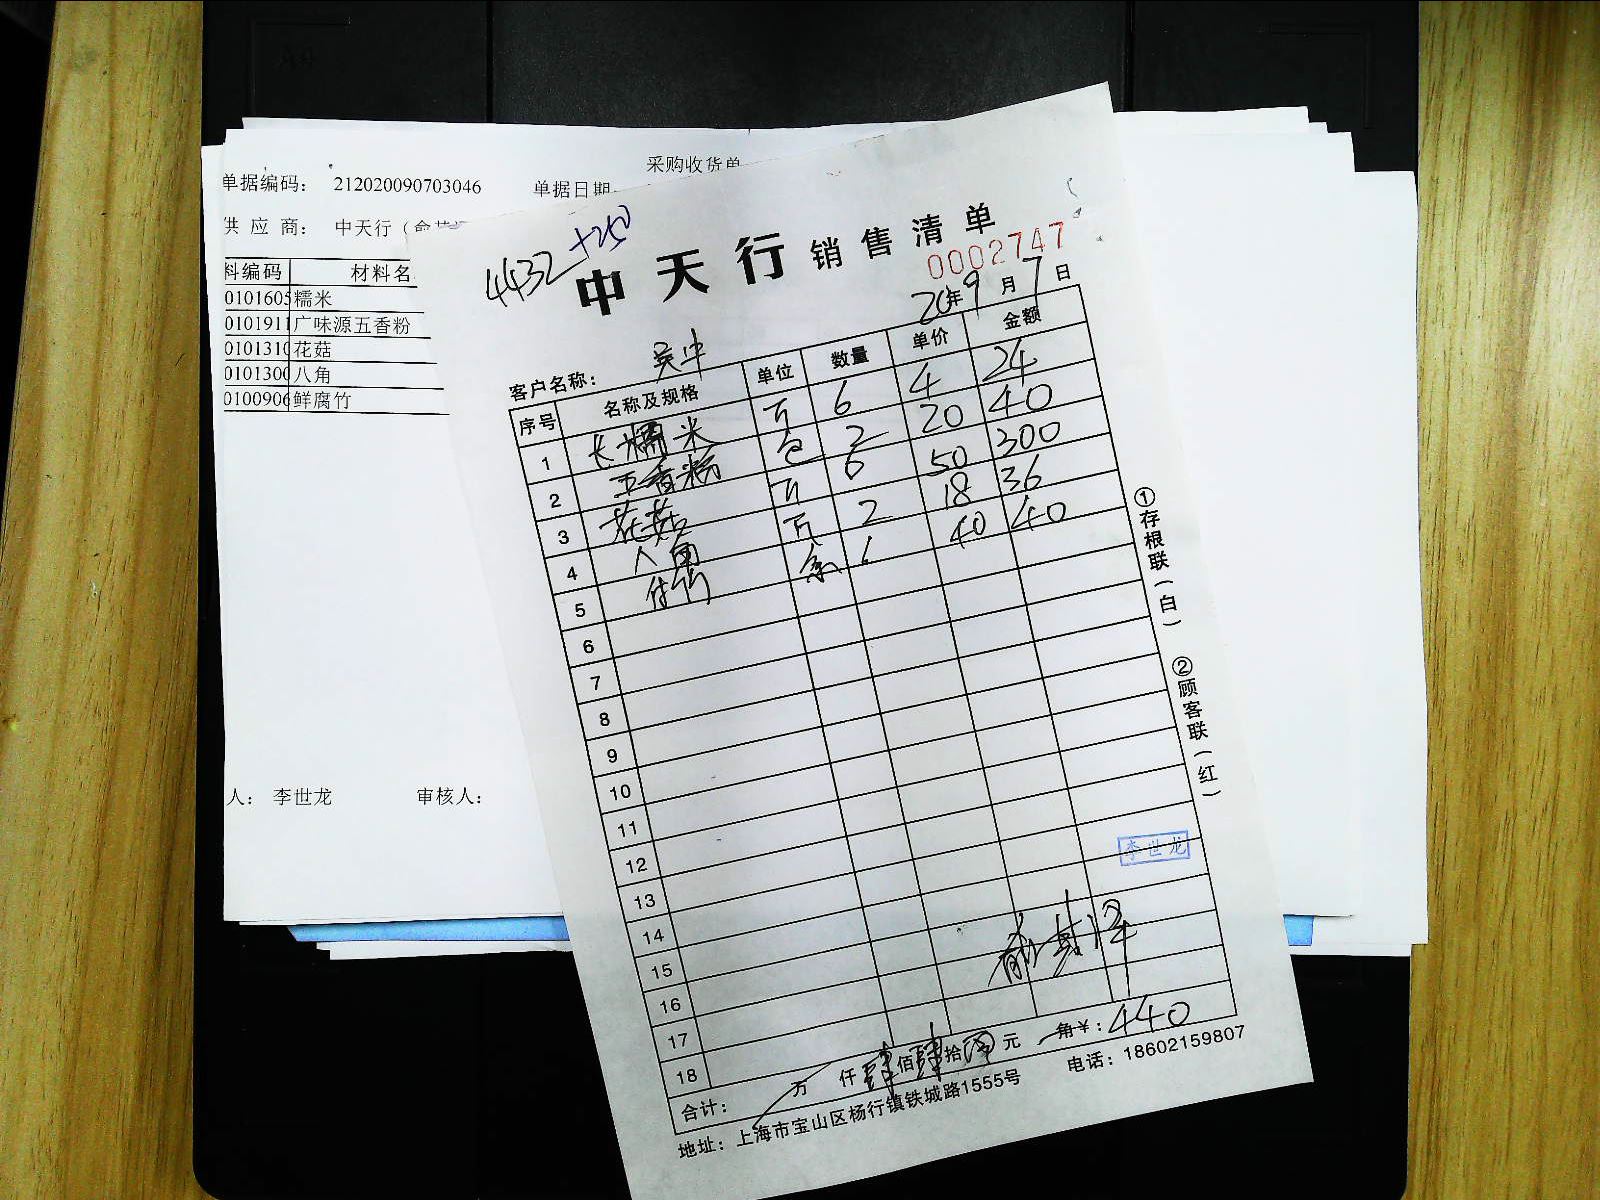 采购收货单
单据编码： 212020090703046 单据日期
供 应 商： 中天行（
料编码 材料名
0101605 糯米
0101911 广味源五香粉
0101310 花菇
0101300 八角
0100906 鲜腐竹
人： 李世龙 审核人：
4432+250
中天行 销售清单
0002747
20年9月7日
客户名称：
序号 名称及规格 单位 数量 单价 金额
1 长糯米 斤 6 4 24
2 五香粉 包 2 20 40
3 花菇 斤 6 50 300
4 八角 斤 2 18 36
5 1 40 40
6
7
8
9
10
11
12
13
14
15
16
17
18
李世龙
合计： 万 仟 肆 佰 肆 拾 元 角 ¥：440
地址：上海市宝山区杨行镇铁城路1555号 电话：18602159807
①存根联（白） ②顾客联（红）